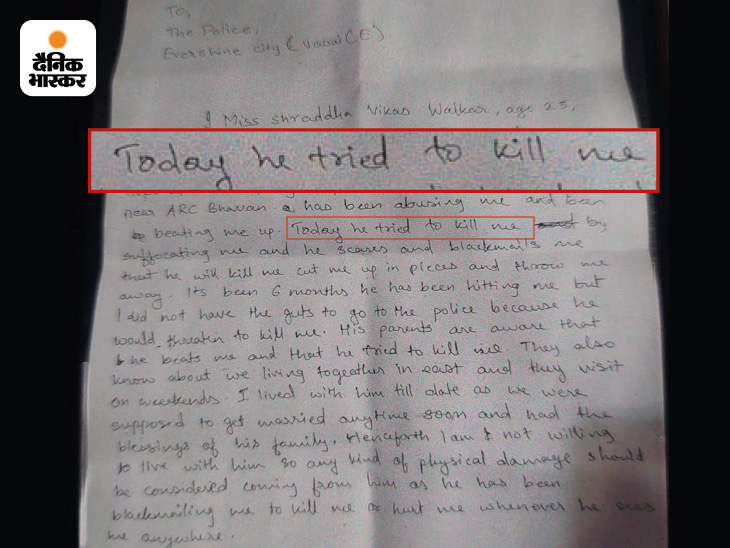 दैनिक
भास्कर
To,
The Police,
Evershine city (Vasai (E)
I Miss Shraddha Vikas Walkar, age 25,
Today he tried to kill me
near ARC Bhavan. has been abusing me and been
beating me up. Today he tried to kill me by
suffocating me and he scares and blackmails me
that he will kill me cut me up in pieces and throw me
away. Its been 6 months he has been hitting me but
I did not have the guts to go to the police because he
would threaten to kill me. His parents are aware that
he beats me and that he tried to kill me. They also
know about we living togeather in east and they visit
on weekends. I lived with him till date as we were
supposed to get married anytime soon and had the
blessings of his family. Henceforth I am not willing
to live with him so any kind of physical damage should
be considered coming from him as he has been
blackmailing me to kill me or hurt me whenever he sees
me anywhere.